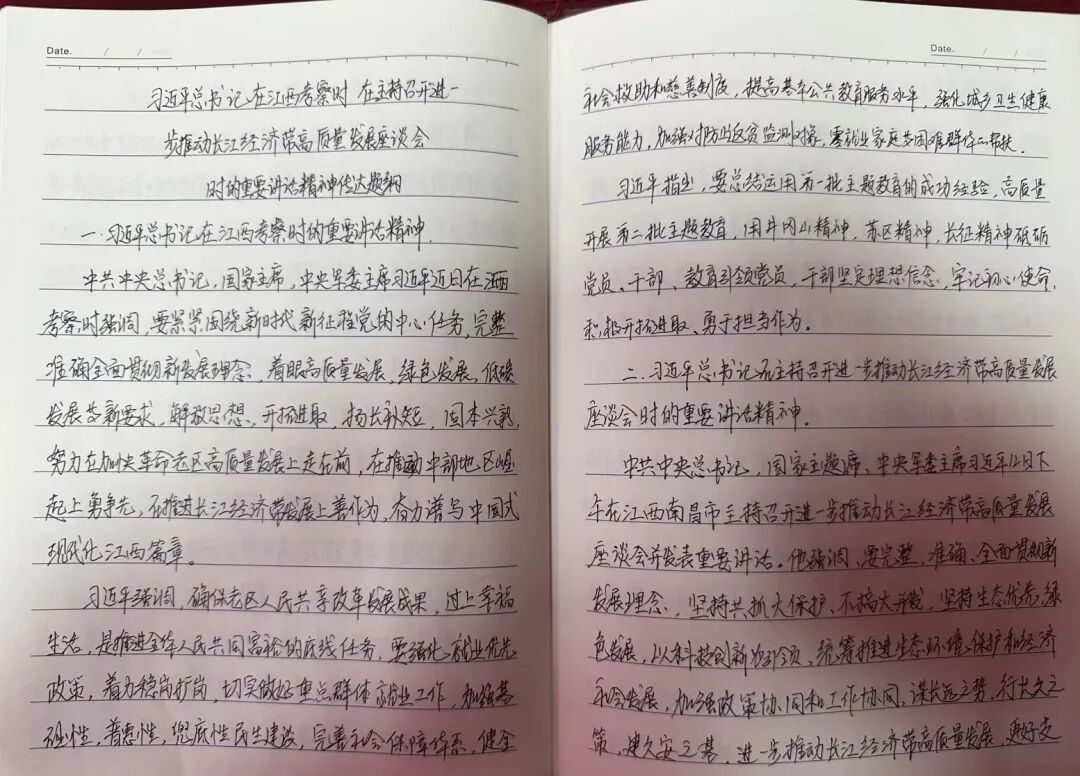 Date. / /
习近平总书记在江西考察时 在主持召开进一
步推动长江经济带高质量发展座谈会
时的重要讲话精神传达题纲
一.习近平总书记在江西考察时的重要讲话精神.
中共中央总书记,国家主席,中央军委主席习近平近日在江西
考察时强调,要紧紧围绕新时代新征程党的中心任务,完整
准确全面贯彻新发展理念,着眼高质量发展,绿色发展,低碳
发展等新要求,解放思想、开拓进取,扬长补短,固本兴新,
努力在加快革命老区高质量发展上走在前,在推动中部地区崛
起上勇争先,在推进长江经济带发展上善作为,奋力谱写中国式
现代化江西篇章。
习近平强调,确保老区人民共享改革发展成果,过上幸福
生活,是推进全体人民共同富裕的底线任务,要强化就业优先
政策,着力稳岗扩岗,切实做好重点群体就业工作,加强基
础性,普惠性,兜底性民生建设,完善社会保障体系,健全
Date. / /
社会救助和慈善制度,提高基本公共教育服务水平,强化城乡卫生健康
服务能力,加强对防止返贫监测对象,零就业家庭等困难群体的帮扶.
习近平指出,要总结运用第一批主题教育的成功经验,高质量
开展第二批主题教育,用井冈山精神,苏区精神,长征精神砥砺
党员、干部、教育引领党员,干部坚定理想信念,牢记初心使命,
积极开拓进取、勇于担当作为。
二.习近平总书记在主持召开进一步推动长江经济带高质量发展
座谈会时的重要讲话精神。
中共中央总书记,国家主题席,中央军委主席习近平12日下
午在江西南昌市主持召开进一步推动长江经济带高质量发展
座谈会并发表重要讲话。他强调、要完整,准确、全面贯彻新
发展理念,坚持共抓大保护、不搞大开发,坚持生态优先,绿
色发展,以科技创新为引领,统筹推进生态环境保护和经济
社会发展,加强政策协同和工作协同,谋长远之势,行长久之
策,建久安之基,进一步推动长江经济带高质量发展,更好支